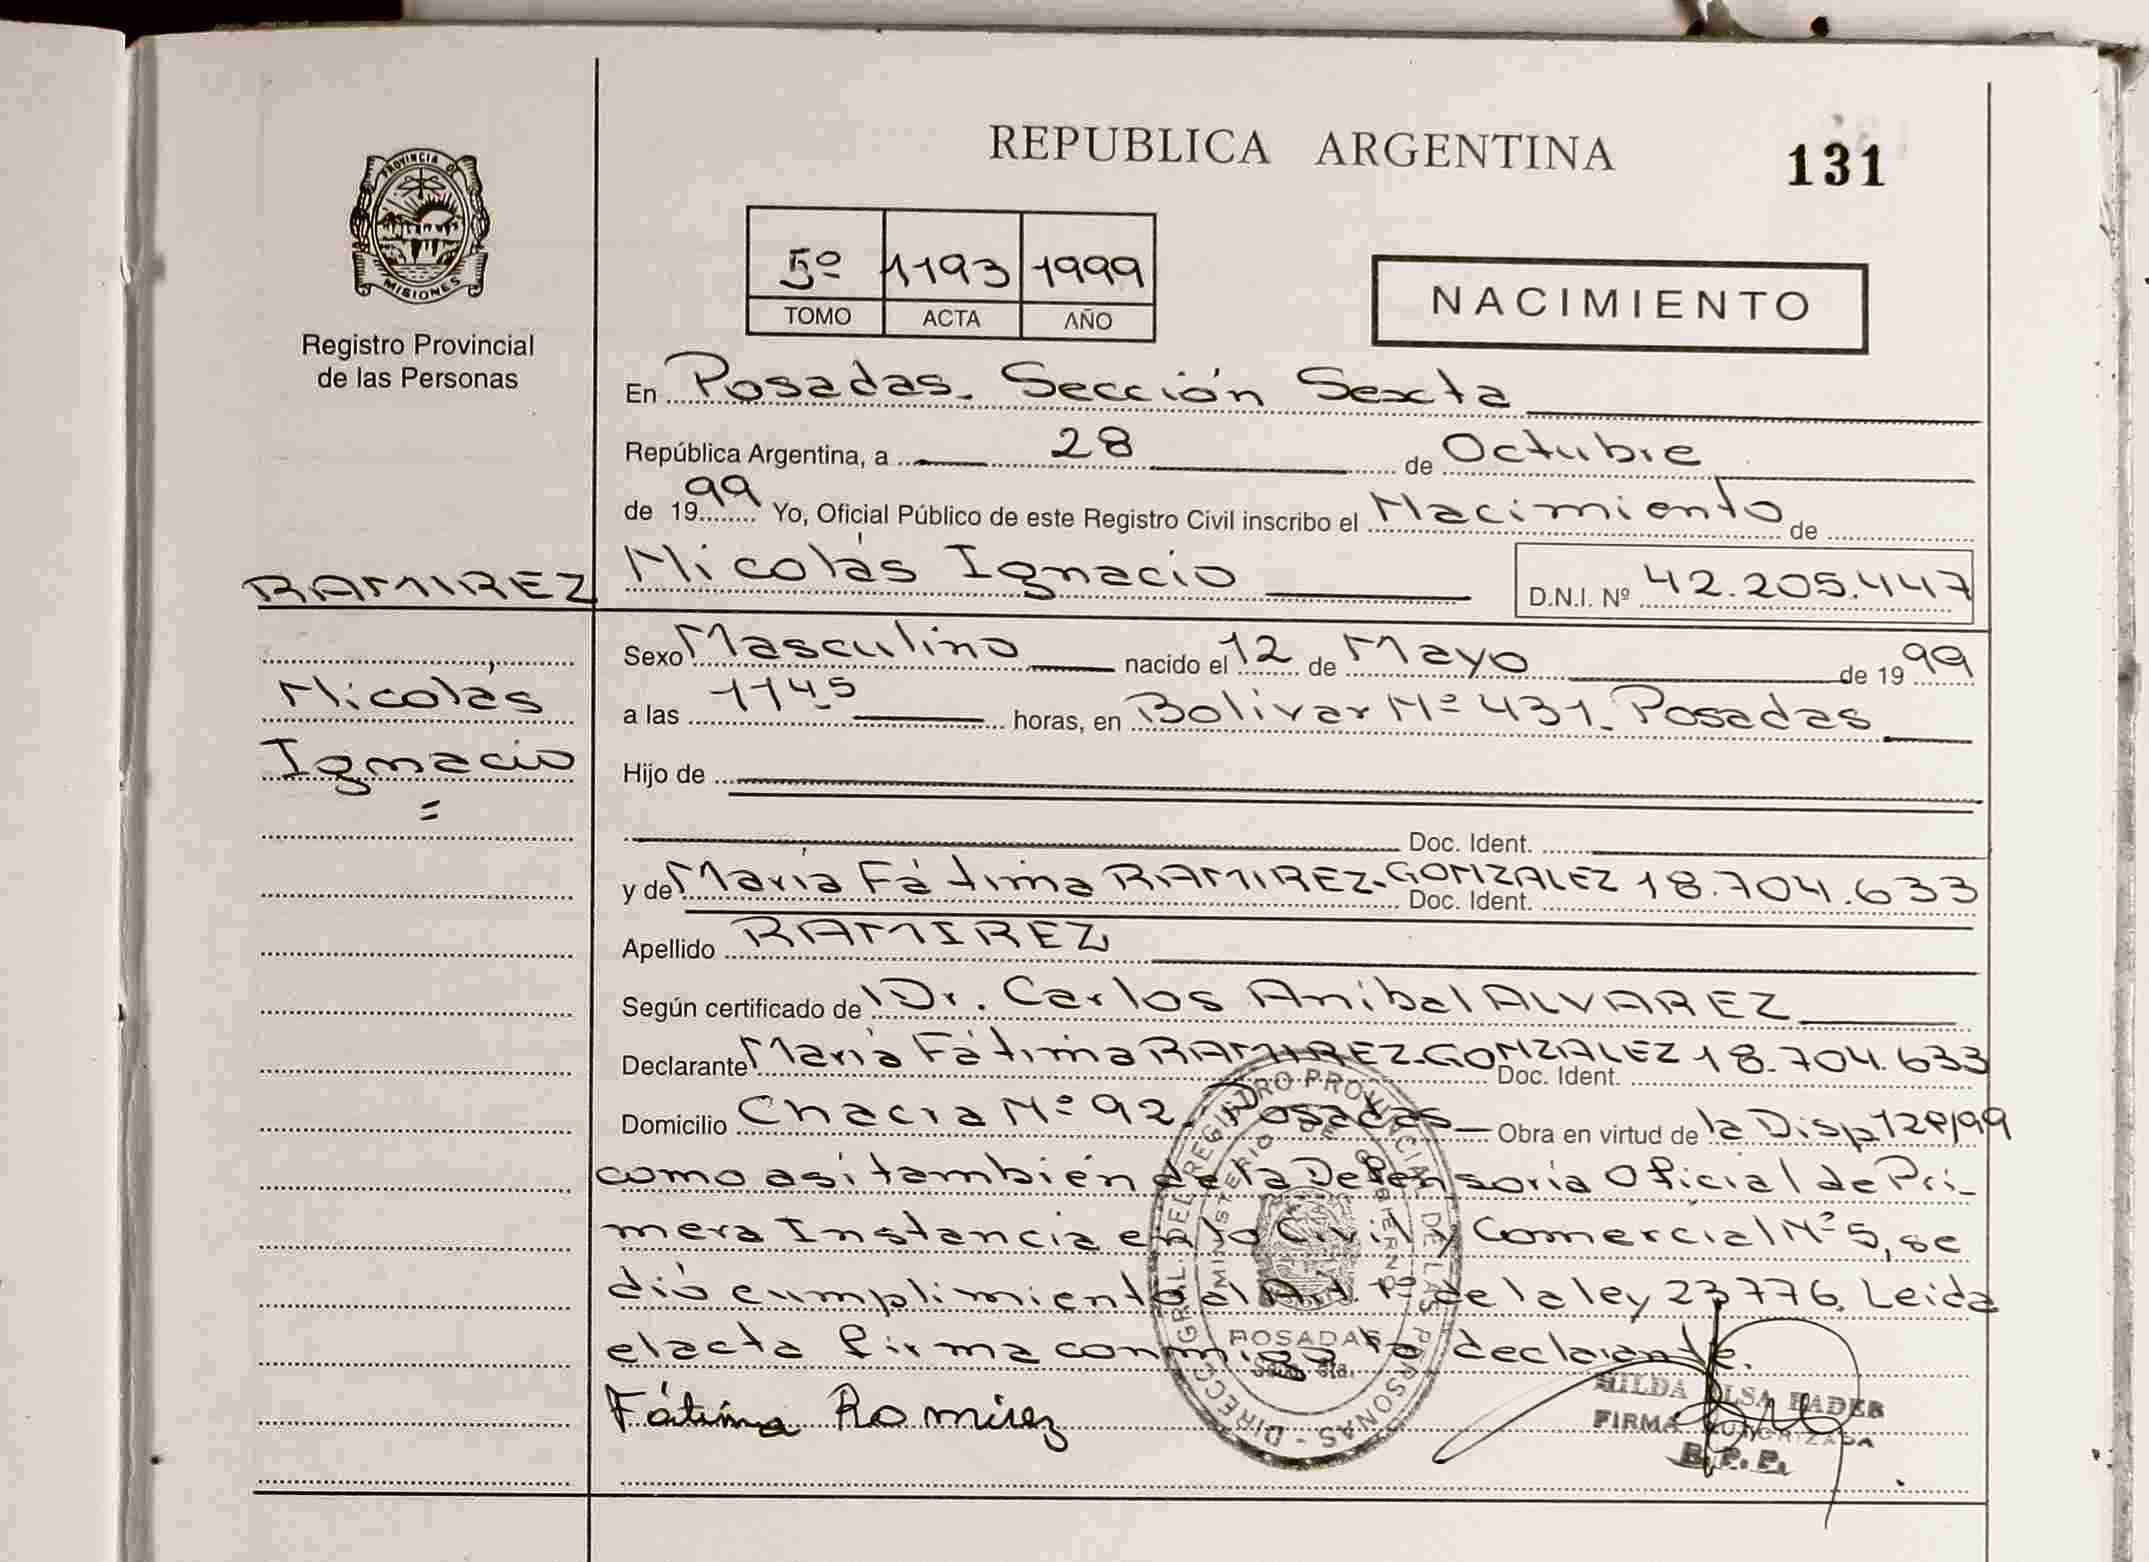 REPUBLICA ARGENTINA
131
PROVINCIA DE
MISIONES
Registro Provincial
de las Personas
5º 1193 1999
TOMO ACTA AÑO
NACIMIENTO
En Posadas. Sección Sexta
República Argentina, a 28 de Octubre
de 1999 Yo, Oficial Público de este Registro Civil inscribo el Nacimiento de
RAMIREZ
Nicolás Ignacio
D.N.I. Nº 42.205.447
Nicolás
Ignacio
=
Sexo Masculino nacido el 12 de Mayo de 1999
a las 1145 horas, en Bolivar Nº 431. Posadas
Hijo de
Doc. Ident.
y de María Fátima RAMIREZ-GONZALEZ Doc. Ident. 18.704.633
Apellido RAMIREZ
Según certificado de Dr. Carlos Aníbal ALVAREZ
Declarante María Fátima RAMIREZ-GONZALEZ Doc. Ident. 18.704.633
Domicilio Chacra Nº 92. Posadas Obra en virtud de la Disp
como asi también de la Defensoría Oficial de Pri-
mera Instancia en lo Civil y Comercial Nº 5, se
dió cumplimiento al Art. 1º de la ley 23776. Leida
el acta firma conmigo la declarante.
Fátima Ramirez
DIRECC. GRAL. DEL REGISTRO PROVINCIAL DE LAS PERSONAS
MINISTERIO DE GOBIERNO
POSADAS
FIRMA AUTORIZADA